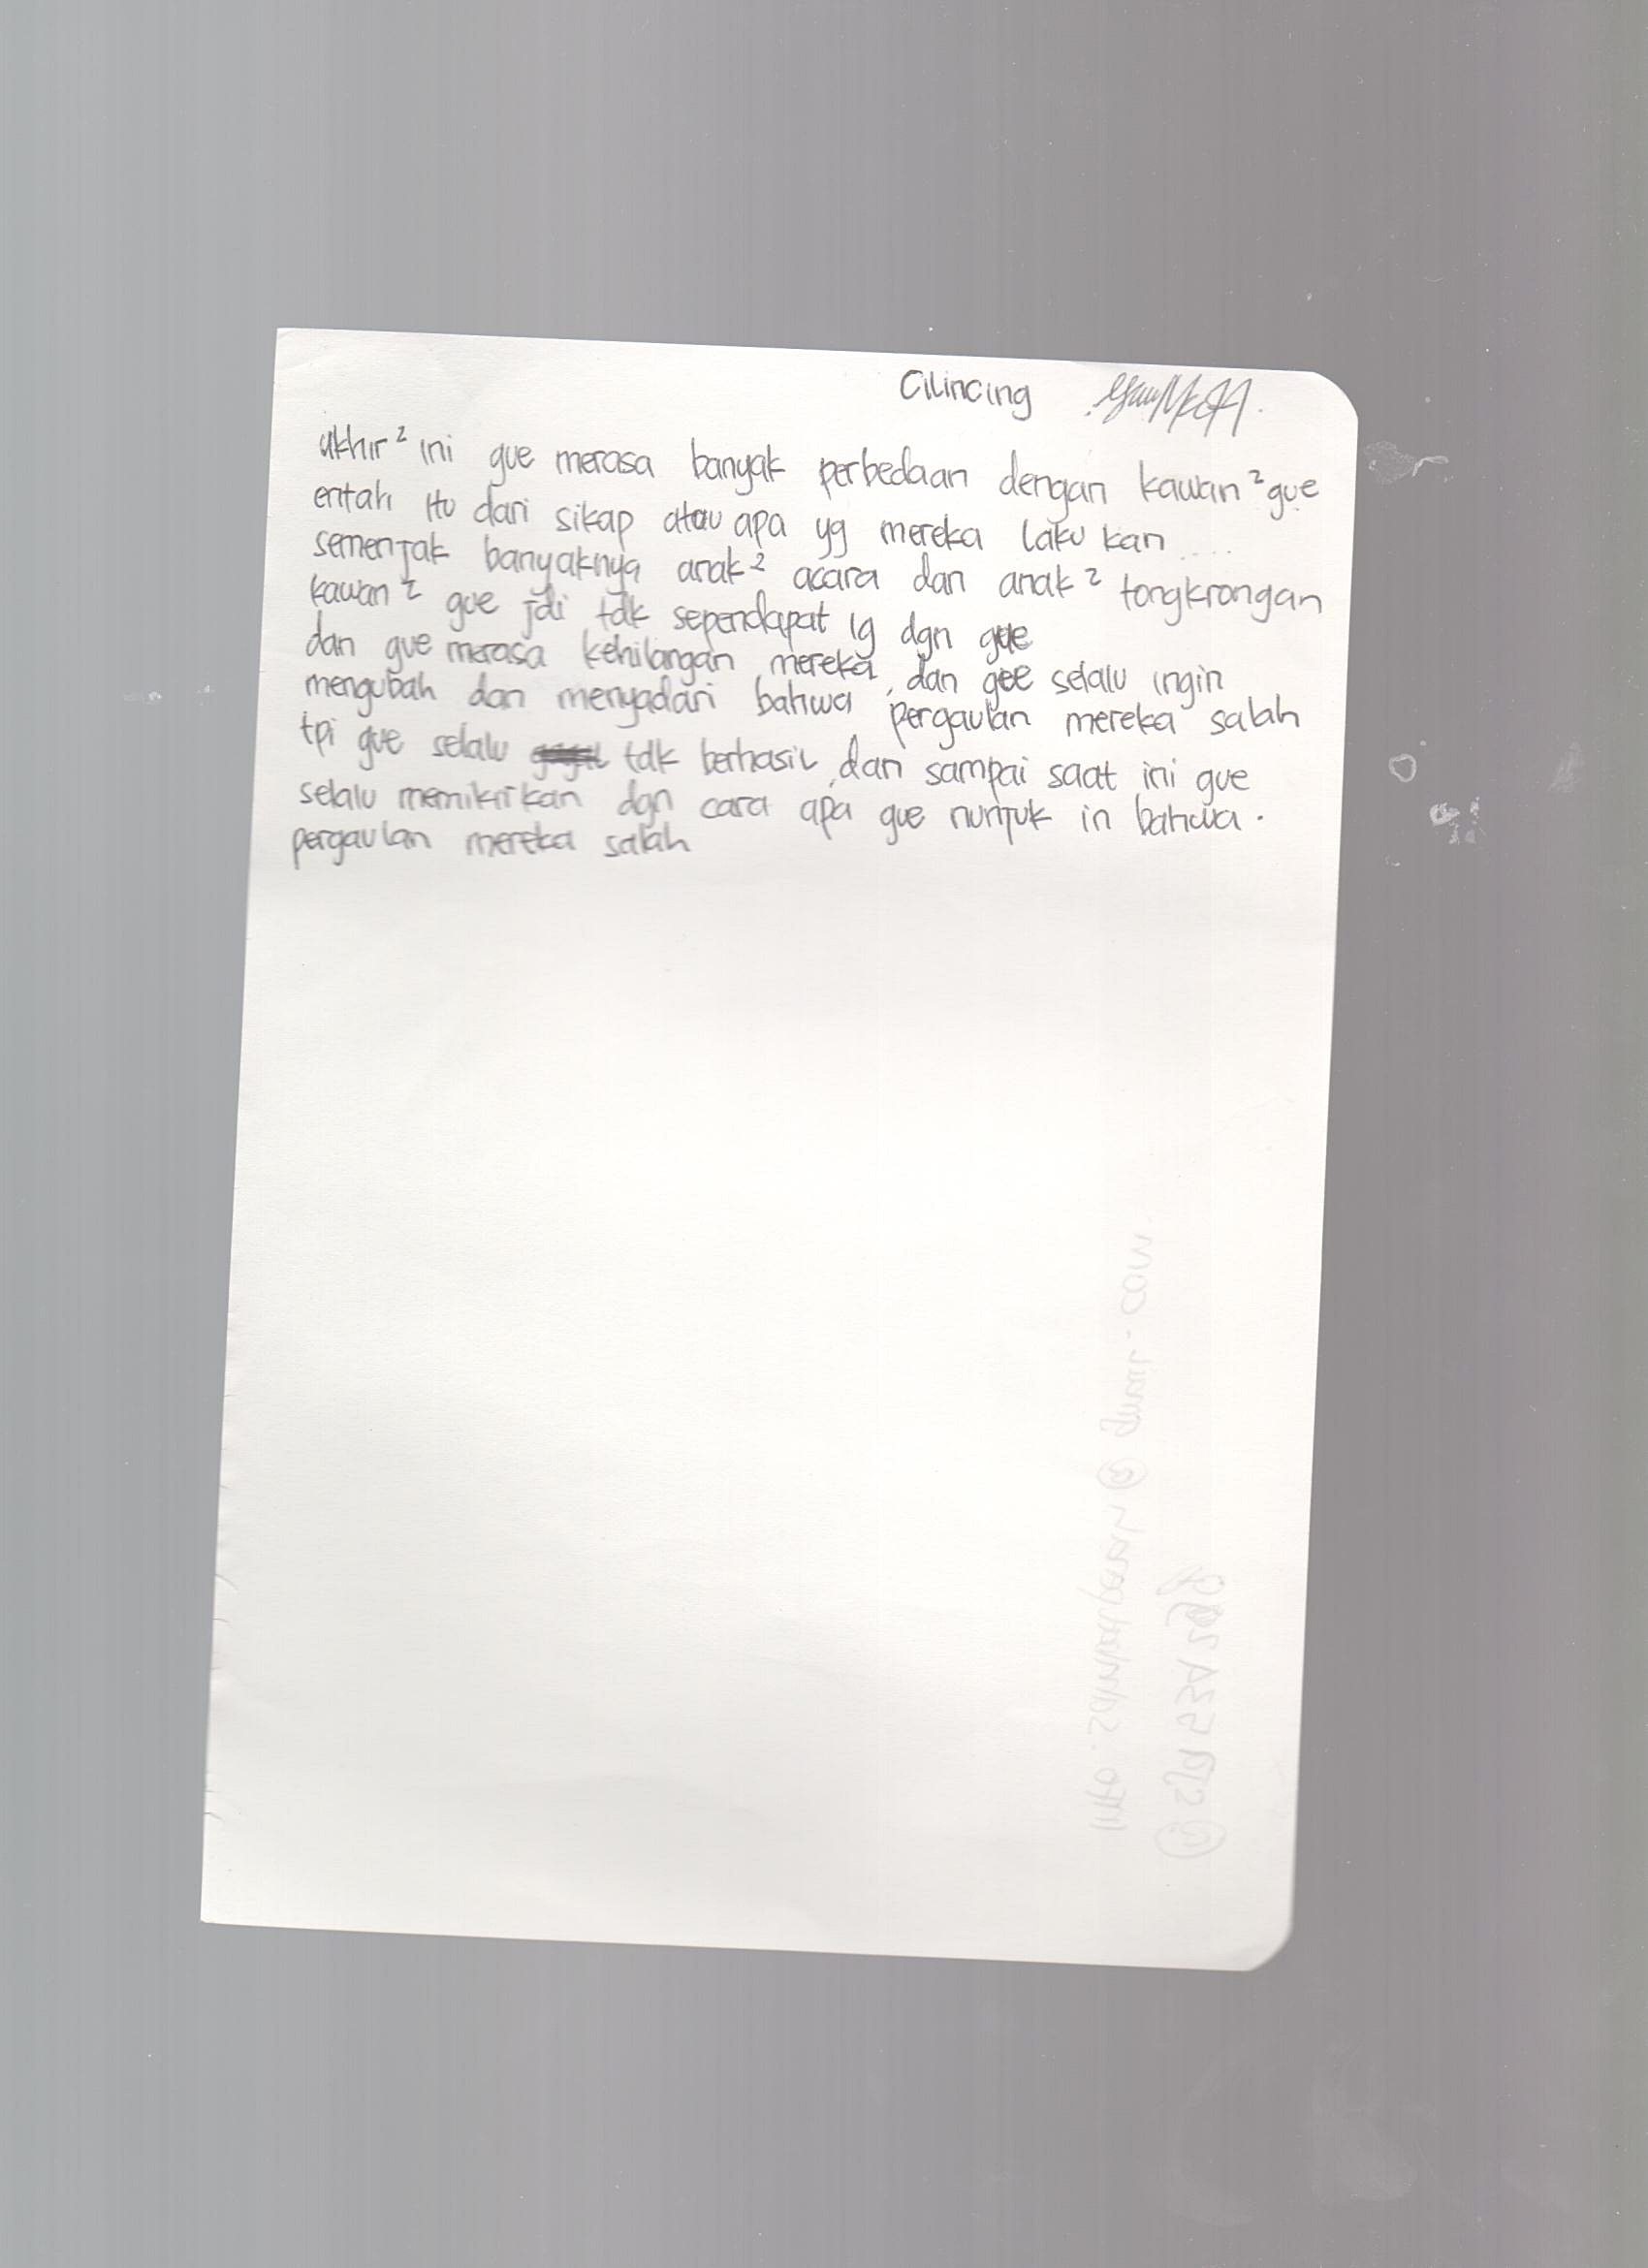 Cilincing
akhir² ini gue merasa banyak perbedaan dengan kawan² gue
entah itu dari sikap atau apa yg mereka laku kan ....
semenjak banyaknya anak² acara dan anak² tongkrongan
kawan² gue jdi tdk sependapat lg dgn gue
dan gue merasa kehilangan mereka, dan gue selalu ingin
mengubah dan menyadari bahwa pergaulan mereka salah
tpi gue selalu tdk berhasil, dan sampai saat ini gue
selalu memikirkan dgn cara apa gue nunjuk in bahwa.
pergaulan mereka salah